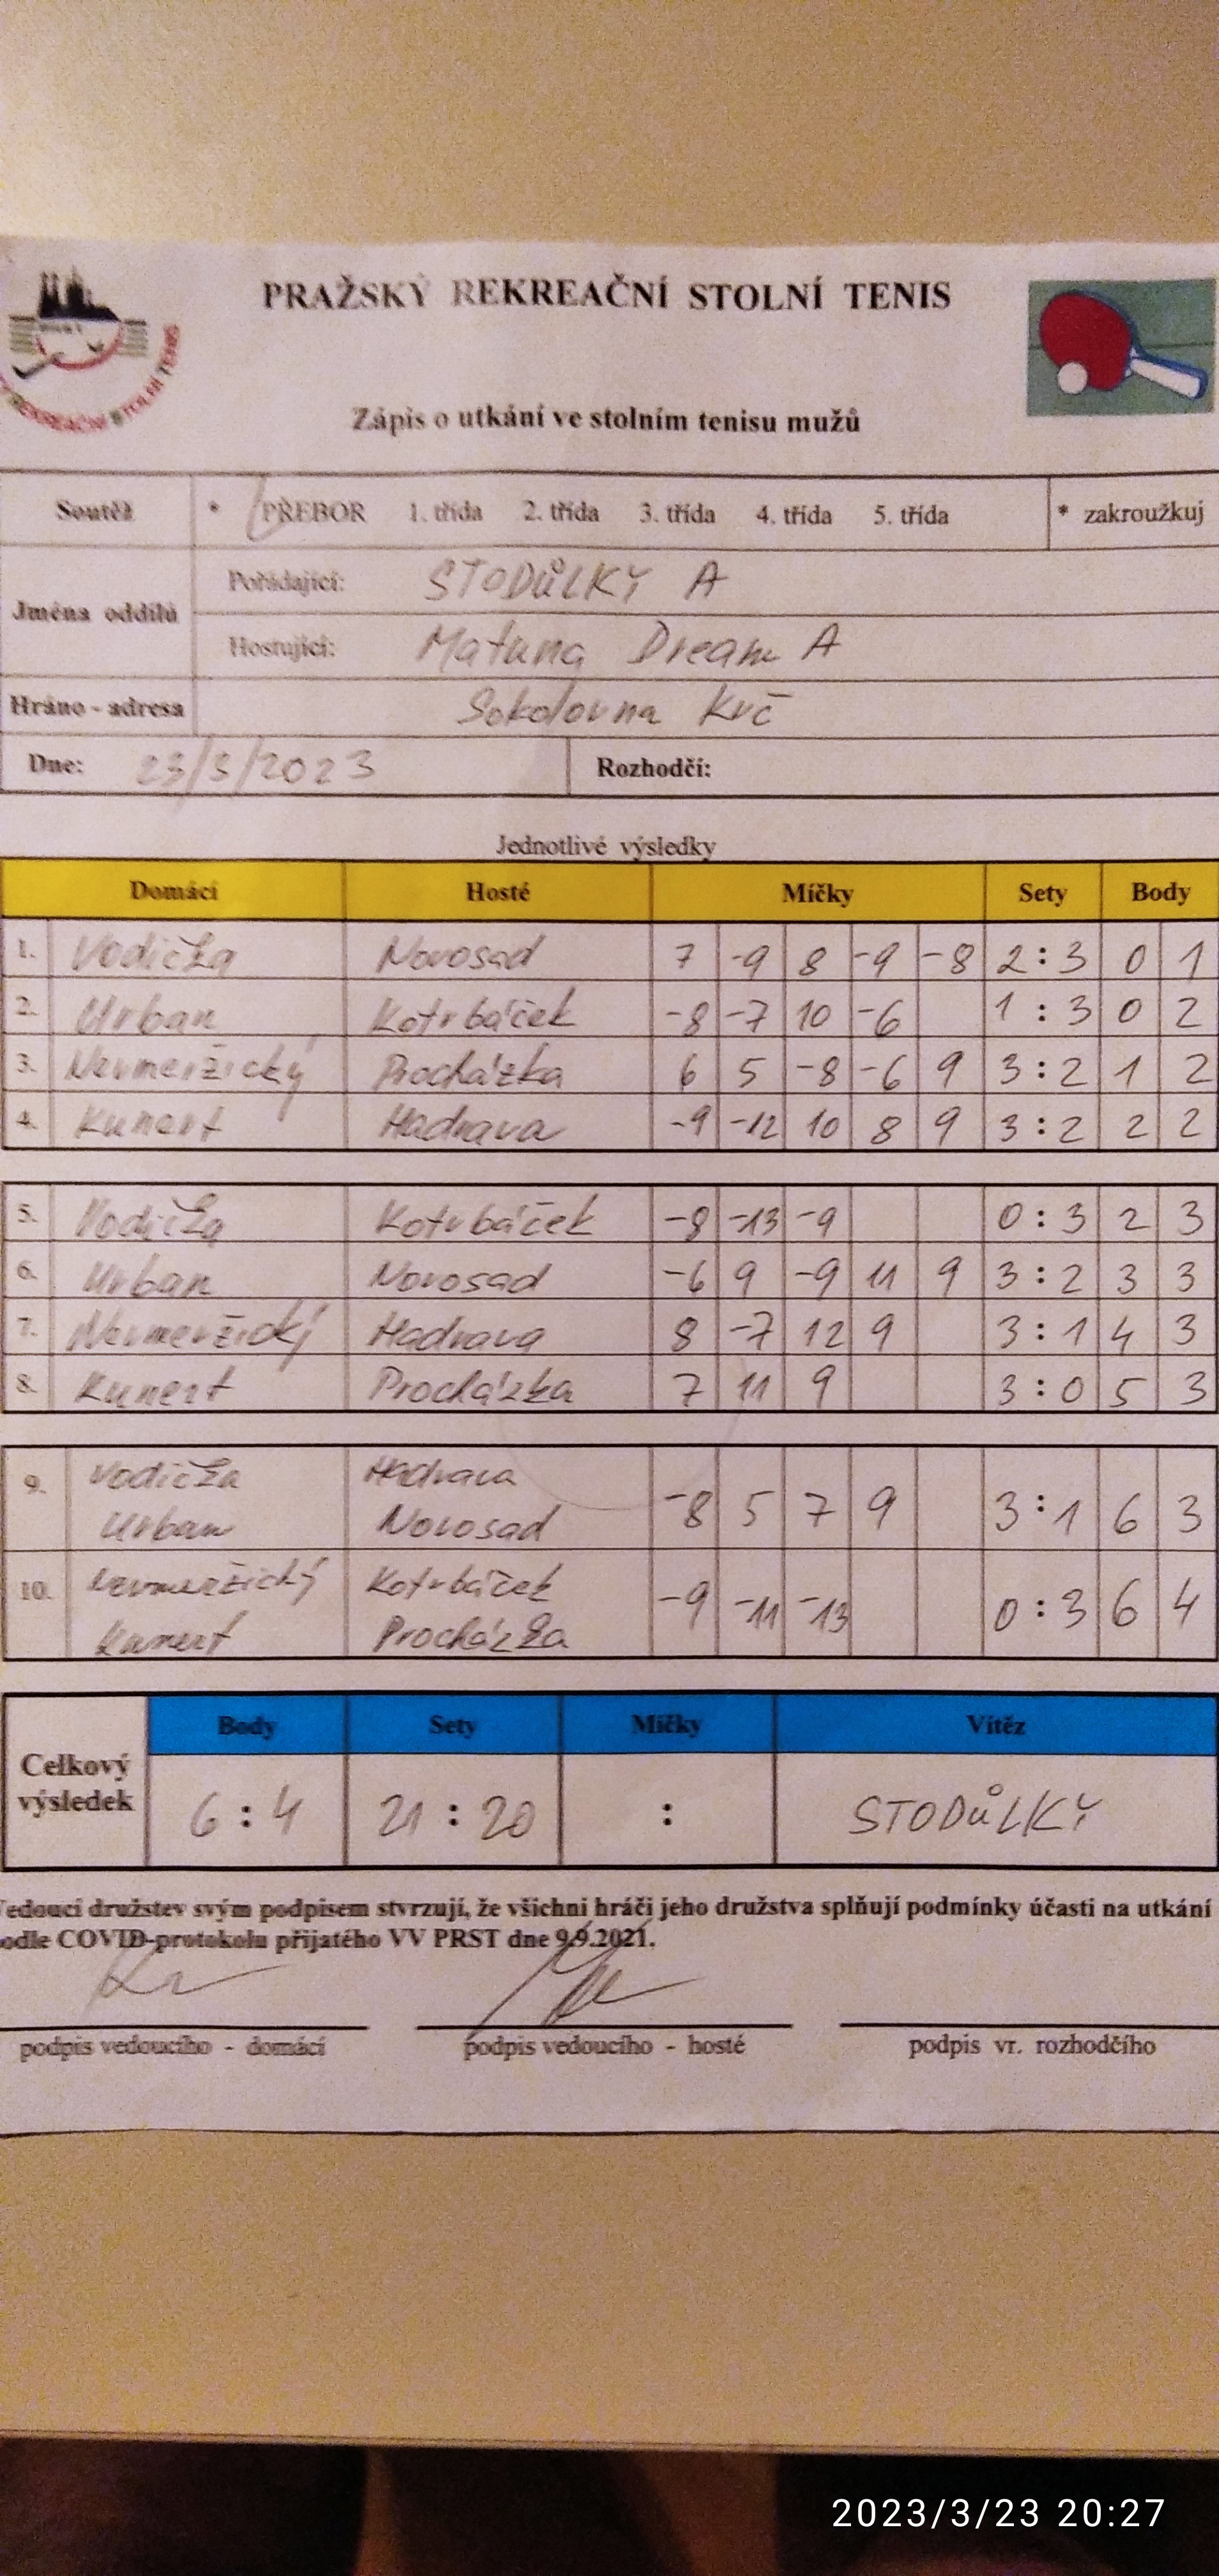 PRAŽSKÝ REKREAČNÍ STOLNÍ TENIS
REKREAČNÍ STOLNÍ TENIS
Zápis o utkání ve stolním tenisu mužů
Soutěž * PŘEBOR 1. třída 2. třída 3. třída 4. třída 5. třída * zakroužkuj
Jména oddílů
Pořádající: STODŮLKY A
Hostující: Matuna Dream A
Hráno - adresa Sokolovna Krč
Dne: 23/3/2023 Rozhodčí:
Jednotlivé výsledky
Domácí Hosté Míčky Sety Body
1. Vodička Novosad 7 -9 8 -9 -8 2:3 0 1
2. Urban Kotrbáček -8 -7 10 -6 1:3 0 2
3. Nevmeržický Procházka 6 5 -8 -6 9 3:2 1 2
4. Kunert Hadrava -9 -12 10 8 9 3:2 2 2
5. Vodička Kotrbáček -8 -13 -9 0:3 2 3
6. Urban Novosad -6 9 -9 11 9 3:2 3 3
7. Nevmeržický Hadrava 8 -7 12 9 3:1 4 3
8. Kunert Procházka 7 11 9 3:0 5 3
9. Vodička Hadrava
Urban Novosad -8 5 7 9 3:1 6 3
10. Nevmeržický Kotrbáček
Kunert Procházka -9 -11 -13 0:3 6 4
Celkový výsledek
Body Sety Míčky Vítěz
6:4 21:20 : STODŮLKY
Vedoucí družstev svým podpisem stvrzují, že všichni hráči jeho družstva splňují podmínky účasti na utkání
odle COVID-protokolu přijatého VV PRST dne 9.9.2021.
podpis vedoucího - domácí podpis vedoucího - hosté podpis vr. rozhodčího
2023/3/23 20:27